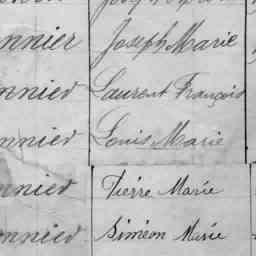 nnier Joseph Marie
nnier Laurent François
nnier Louis Marie
nnier Pierre Marie
onnier Siméon Marie